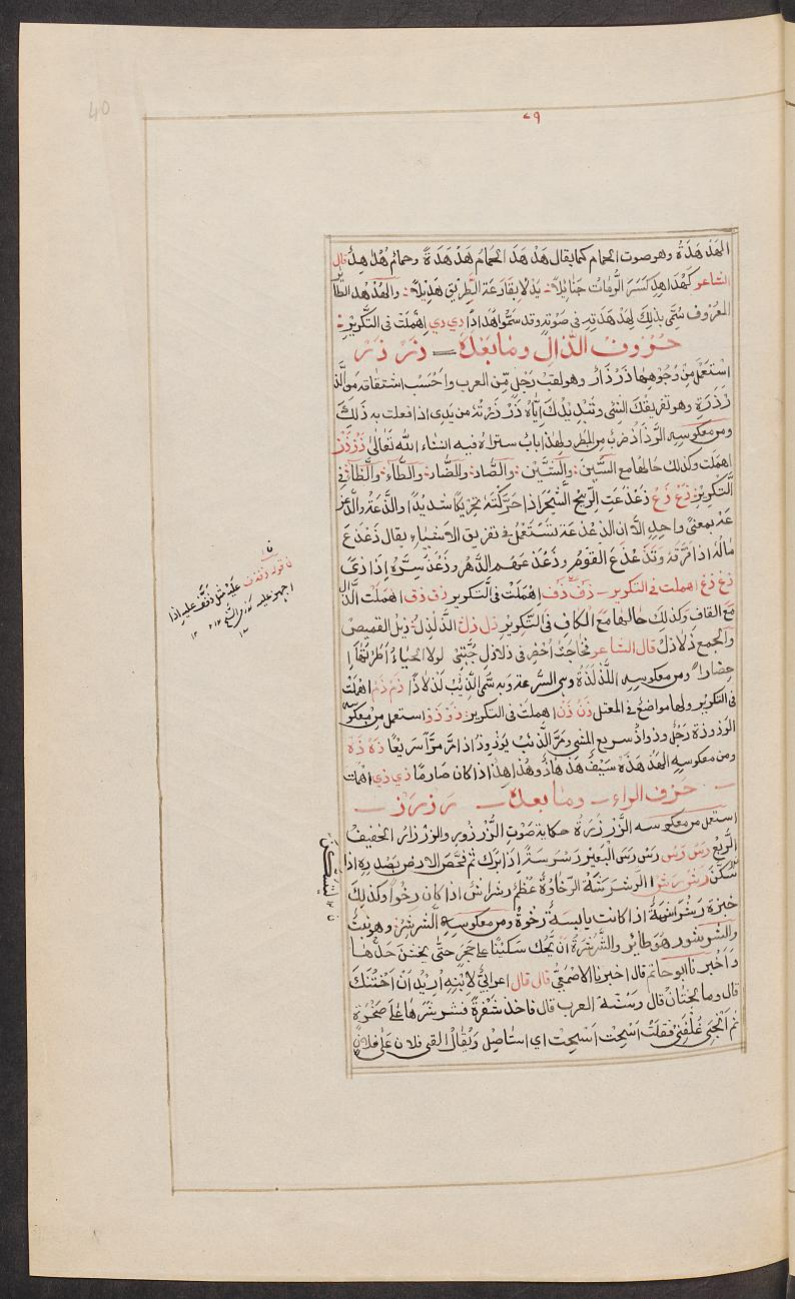 ٧٩
40
الهَدْهَدَةُ وهو صوت الحمام كما يقال هَدْهَدَ الحمامُ هَدْهَدَةً وحمائم هُدْ هِدُ قال
الشاعر كهُداهِدٍ كسَرَ الرُّماتُ جَناحَه يَدْعو بقارعَة الطَّريق هَدِيلا والهُدْهد الطا
المعرُوف سُمِّي بذلِكَ لِهَدْهَدَتِهِ فى صَوتِه وقد سمَّوا هَداداً دى دى اهملت فى التَّكريرِ
حروف الذّال وما بعدهُ ذر ذر
استعمل مِنْ وُجُوهِها ذَرْذارُ وهو لقبُ رَجُلٍ مِّن العرب واَحْسَبُ اشتقاقه من الذَّ
رْذَرَةِ وهو تفريقُكَ الشئ وتَبْديدُكَ اِيَّاهُ ذَرْ ذَرْتُهُ من يَدِى اذا فعلت به ذلِكَ
ومن معكوسِه الرَّذاذُ ضربٌ من المطر ولهذا بابٌ ستراهُ فيه انشاء الله تَعَالىٰ ذز ذز
اهملت وكذلك حالها مع السِّينَ والشِّينَ والصَّاد والضَّاد والطَّاء والظَّاء فى
التَّكرِيرِ ذع ذع ذَعْذَعَتِ الرِّيحُ الشَّجَر اذا حَرَّكَتْه تحريكًا شديْدًا والذَّعذعة والزعز
عَة بمعنىً واحدٍ الّا ان الذعذعة تُسْتَعْمَلُ فى تفريق الاَشياء يقال ذَعْذَعَ
مالَهُ اذا فرَّقَه وتَذَعْذَعَ القَومُ وذَعْذَعَهم الدَّهر وذَعْذَعَ سِرَّهُ اِذَا
ذغ ذغ اهملت فى التكرير ذف ذف اهملت فى التَّكرير ذق ذق اهملت الذّال
مَعَ القاف وكذلِكَ حالها مَعَ الكاف فى التَّكرِير ذل ذل الذُّلذِلُ ذيل القميص
والجمع ذلاذلُ قال الشاعر فى ذلاذل جُبَّتِى لولا الحياءُ
حِضارا ومن معكوسِه اللَّذْلَذَةُ وهى السُّرعة وبه سُمِّى الذِّئبُ لَذْلاذًا ذم ذم اهملت
فى التكرير ولها مواضع فى المعتل ذن ذن اهملت فى التكرير ذو ذو استعمل مِن معكوسِه
الوَزْوزة رَجُلٌ وذواذٌ سريع المشى ومَرَّ الذِّئبُ يُوَذْوِذُ اذا مرَّ مرًّا سَرِيعًا ذه ذه
ومن معكوسِه الهَذْهَذَة سَيْفٌ هَذْهاذٌ وهُذاهِذٌ اذا كان صارمًا ذى ذى اهملت
حرف الراء وما بعدهُ رز رز
استعمل من معكوسه الزَّرْزَرَةُ حكاية صَوتِ الزُّرْزورِ والزرزار الخفيف
السَّريع رس رس رَسْرَسَ البَعِيرُ رَسْرَسَةً اِذا بَرَك ثم فَحَصَ الارض بصَدرِه اذا
سَكَن رش رش الرَّشرَشَةُ الرَّخاوَةُ عَظْمٌ رَشْراشٌ اذا كان رِخْوا وكذلكَ
خبزة رَشْرَاشَةٌ اذا كانت يابسة رِخْوةٌ ومن معكوسِه الشِّرشِرُ وهو نبتٌ
والشُّرشُور هو طائر والشَّرْشَرةُ أن تَحُك سكينًا على حَجَرٍ حتَّى يخشن حَدُّها
وَاَخْبرنا ابو حاتم قال اخبرنا الاصْمَعِىُّ قال قال اعرابىٌّ لاِبْنِهِ اُرِيْدُ اَنْ اَخْتُنَكَ
قال وما الخِتانُ قال رسُنّة العرب قال فاخذ شَفْرةً فشرشرها على صَخْرَةٍ
ثم اَنْحَى غُلْفَتِى فقلتُ اَسْحِت اَسْحِت اى استاصِلْ وَيُقالُ القى فلان على فلانٍ
ن
عَلَيْه مثل ذَفَّفَ عليه اذا
اجهز عليه